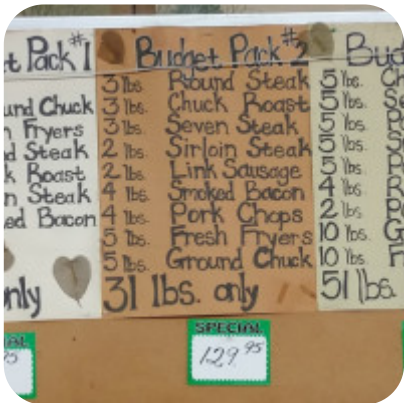 et Pack #1
und Chuck
n Fryers
d Steak
k Roast
n Steak
ed Bacon
only
Budget Pack #2
3 lbs. Round Steak
3 lbs. Chuck Roast
3 lbs. Seven Steak
2 lbs. Sirloin Steak
2 lbs. Link Sausage
4 lbs. Smoked Bacon
4 lbs. Pork Chops
5 lbs. Fresh Fryers
5 lbs. Ground Chuck
31 lbs. only
SPECIAL
129.95
Bud
5 lbs. Ch
5 lbs. Se
5 lbs. P
5 lbs. S
5 lbs. P
4 lbs. R
2 lbs. P
10 lbs. G
10 lbs. F
51 lbs.
IAL
95